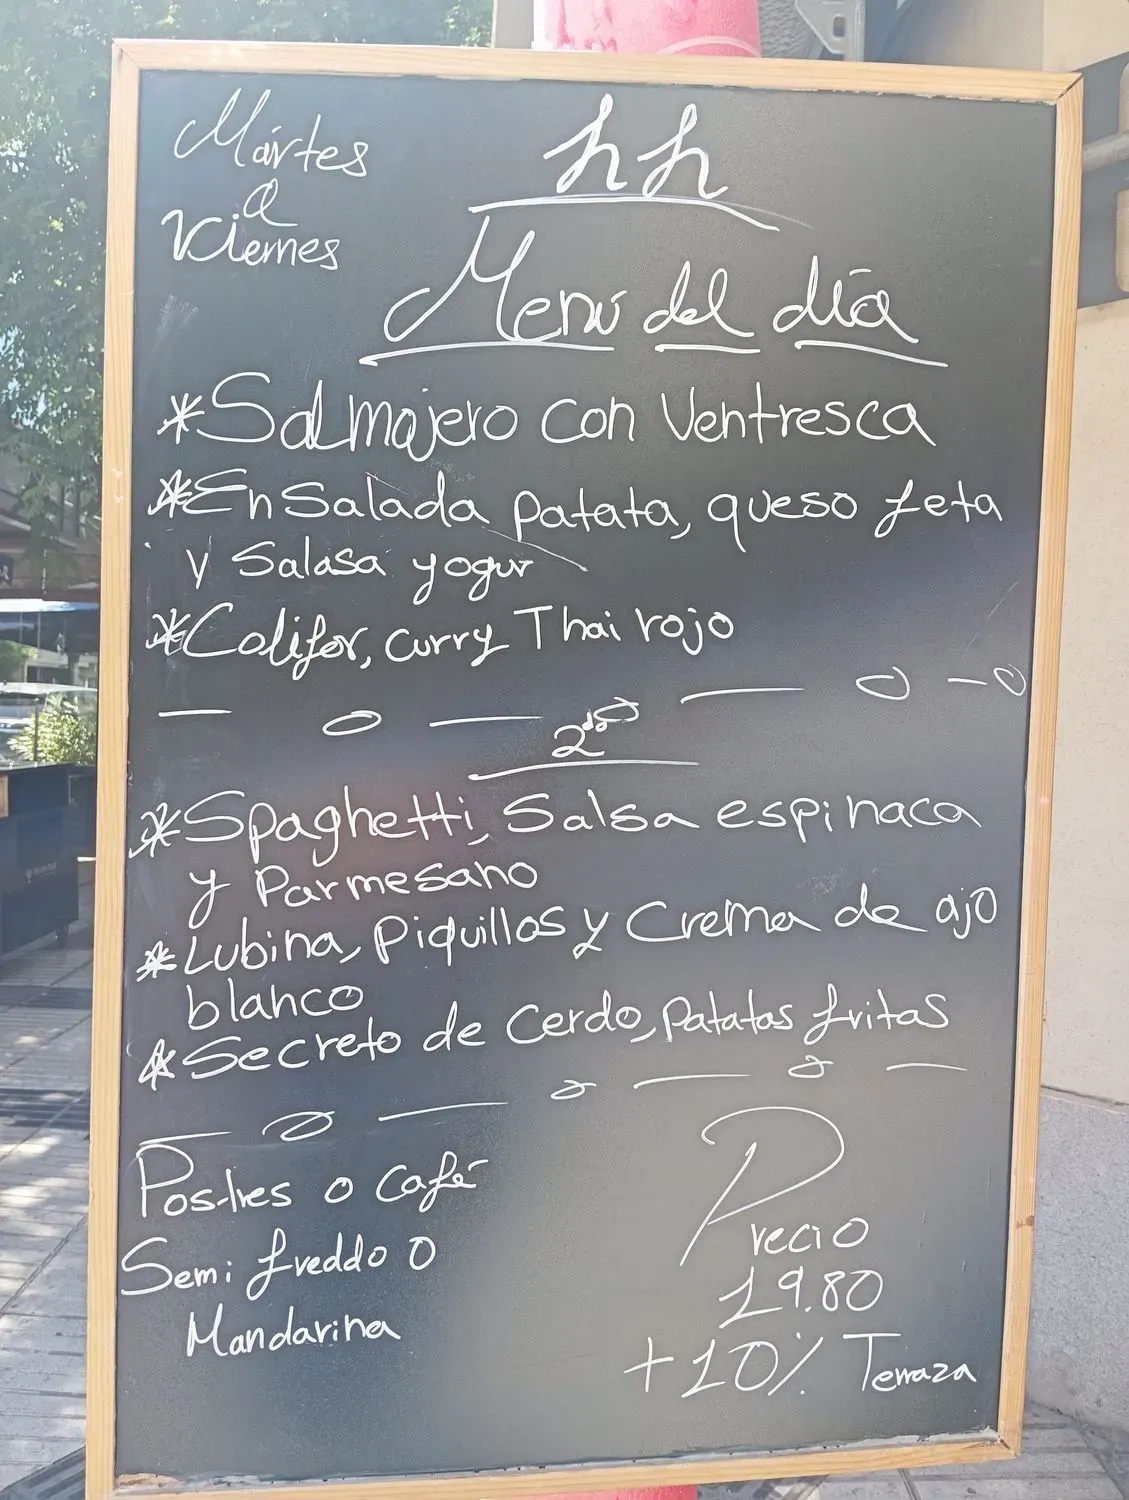 Mártes
a
Viernes
hh
Menú del día
*Salmojero con Ventresca
*EnSalada patata, queso feta
y Salasa yogur
*Colifor, curry Thai rojo
2do
*Spaghetti, Salsa espinaca
y Parmesano
*Lubina, Piquillos y Crema de ajo
blanco
*Secreto de Cerdo, Patatas fritas
Postres o Café
Semi freddo o
Mandarina
Precio
19.80
+10% Terraza